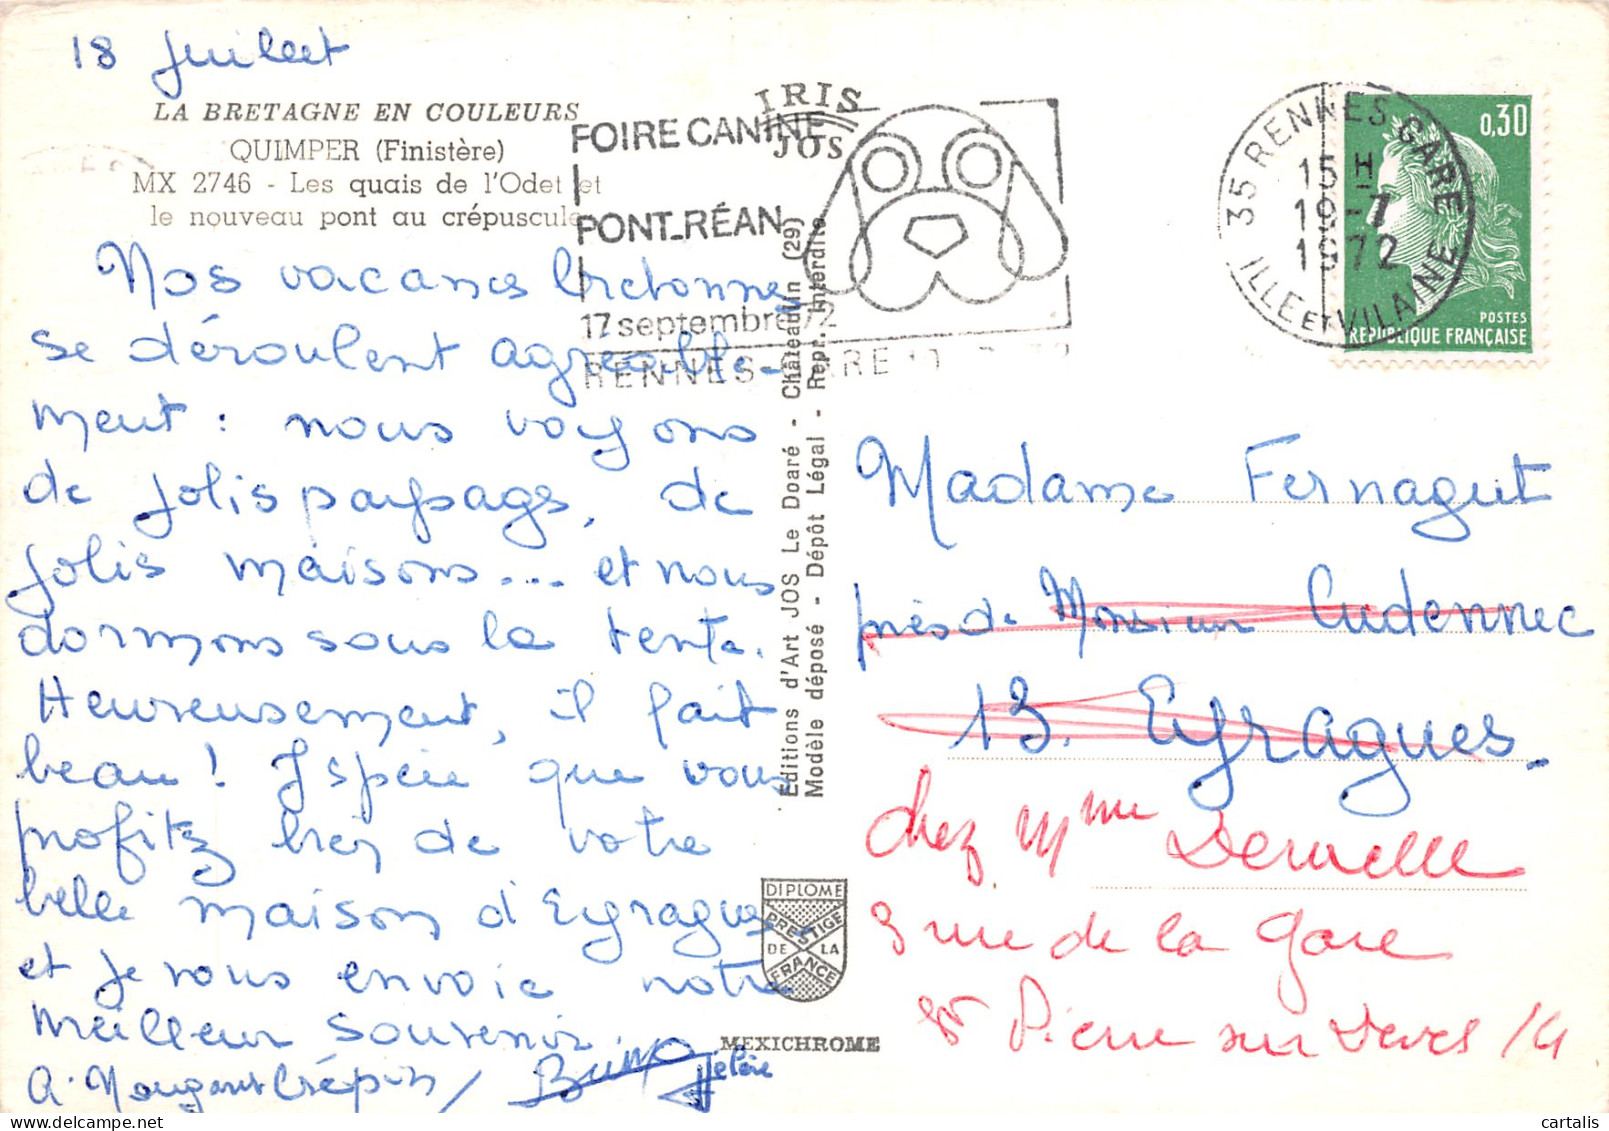 18 Juillet
LA BRETAGNE EN COULEURS
QUIMPER (Finistère)
MX 2746 - Les quais de l'Odet et
le nouveau pont au crépuscule
Nos vacances bretonnes
se déroulent agréable-
ment : nous voyons
de jolis paysages, de
jolis maisons... et nous
dormons sous la tente.
Heureusement, il fait
beau ! J'espère que vous
profitez bien de votre
belle maison d'Eyragues
et je vous envoie notre
meilleur souvenir.
Bruno Hélène
IRIS
JOS
FOIRE CANINE
PONT-RÉAN
17 septembre 72
RENNES-GARE
Editions d'Art JOS Le Doaré - Châteaulin (29)
Modèle déposé - Dépôt Légal - Repr. Interdite
DIPLOME
PRESTIGE
DE LA
FRANCE
MEXICHROME
35 RENNES GARE
15 H
19-7
1972
ILLE ET VILAINE
0,30
POSTES
REPUBLIQUE FRANÇAISE
Madame Fernagut
près de Monsieur Cudennec
13. Eyragues
chez Mme
3 rue de la gare
St Pierre sur Dives 14
cartalis